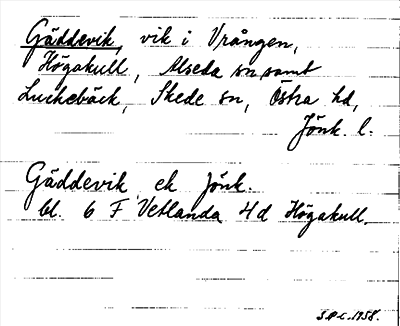 Gäddevik, vik i Vrången,
Högakull, Alseda sn samt
Luckebäck, Skede sn, Östra hd,
Jönk. l.
Gäddevik ek Jönk.
bl. 6 F Vetlanda 4d Högakull.
S.P.C. 1958.